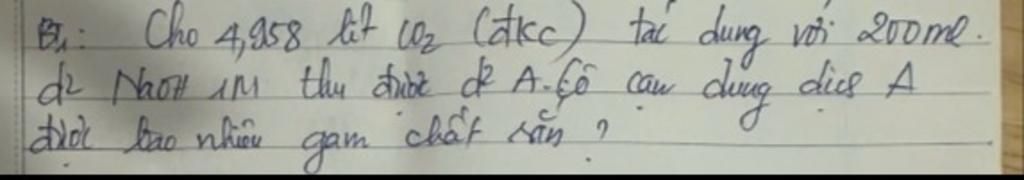 B1: Cho 4,958 lít CO2 (đkc) tác dụng với 200ml.
d2 NaOH 1M thu được d2 A. Cô cạn dung dịch A
được bao nhiêu gam chất rắn ?